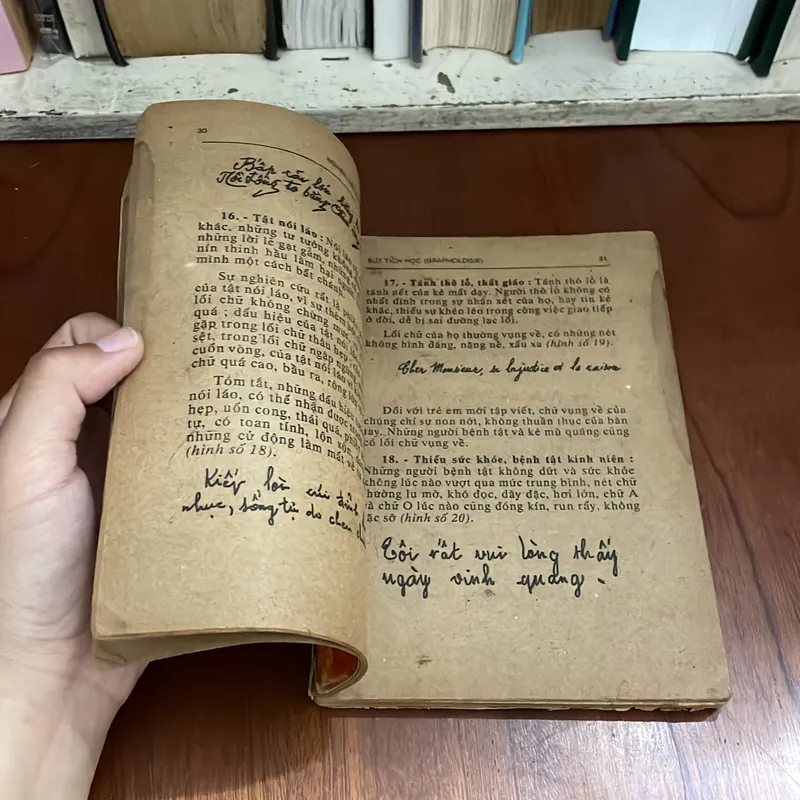 30
16. - Tật nói láo : Nói láo
khác, những tư tưởng không
những lời lẽ gạt gẫm, những
nín thinh hầu làm hại người
mình một cách bất chánh.
Sự nghiên cứu rất là phiền
của tật nói láo, vì sự thêm
lối chữ không chừng mực
quá ; dấu hiệu của tật nói
gặp trong lối chữ thấu hẹp
sệt, trong lối chữ ngập ngừng
cuốn vòng, của tật nói láo vì
chữ quá cao, bầu ra, rộng lớn
Tóm tắt, những dấu hiệu của
nói láo, có thể nhận được
hẹp, uốn cong, thái quá,
tự, có toan tính, lộn xộn
những cử động làm mất vẻ
(hình số 18).
Kiếp lòn cúi đỉnh
nhục, sống tự do chen
BÚT TÍCH HỌC (GRAPHOLOGIE) 31
17. - Tánh thô lỗ, thất giáo : Tánh thô lỗ là
tánh nết của kẻ mất dạy. Người thô lỗ không có
nhất định trong sự nhận xét của họ, hay tin kẻ
khác, thiếu sự khéo léo trong công việc giao tiếp
ở đời, dễ bị sai đường lạc lối.
Lối chữ của họ thường vụng về, có những nét
không hình đáng, nặng nề, xấu xa (hình số 19).
Cher Monsieur, se et la raison
Đối với trẻ em mới tập viết, chữ vụng về của
chúng chỉ sự non nớt, không thuần thục của bàn
tay. Những người bệnh tật và kẻ mù quáng cũng
có lối chữ vụng về.
18. - Thiếu sức khỏe, bệnh tật kinh niên :
Những người bệnh tật không dứt và sức khỏe
không lúc nào vượt qua mức trung bình, nét chữ
thường lu mờ, khó đọc, dày đặc, hơi lớn, chữ A
và chữ O lúc nào cũng đóng kín, run rẩy, không
sặc sỡ (hình số 20).
Tôi rất vui lòng thấy
ngày vinh quang.